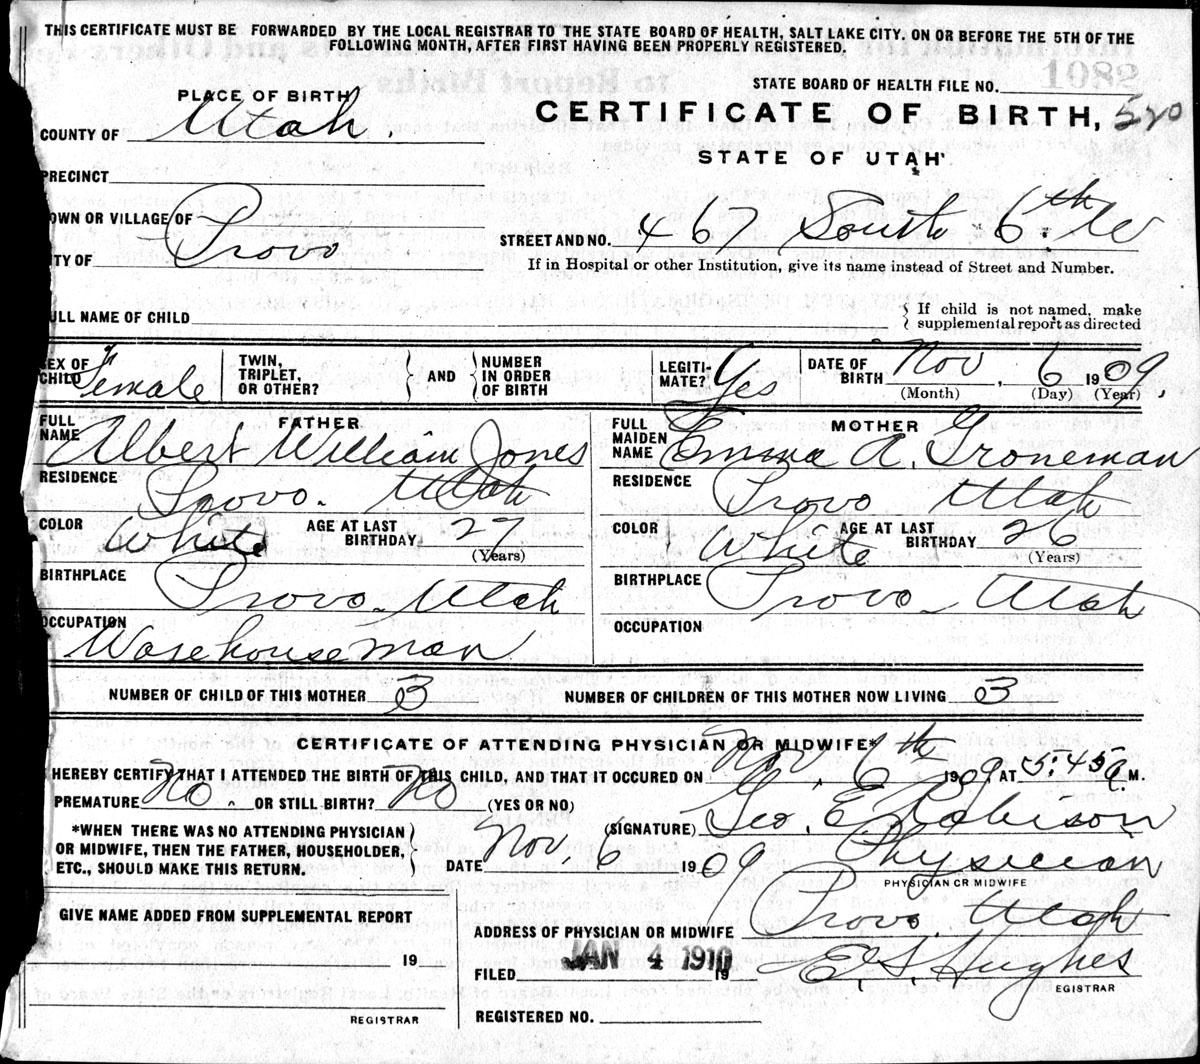 THIS CERTIFICATE MUST BE FORWARDED BY THE LOCAL REGISTRAR TO THE STATE BOARD OF HEALTH, SALT LAKE CITY. ON OR BEFORE THE 5TH OF THE
FOLLOWING MONTH, AFTER FIRST HAVING BEEN PROPERLY REGISTERED.
1082
STATE BOARD OF HEALTH FILE NO.
PLACE OF BIRTH
CERTIFICATE OF BIRTH, 520
COUNTY OF Utah.
STATE OF UTAH
PRECINCT
OWN OR VILLAGE OF
ITY OF Provo
STREET AND NO. 467 South 6th W
If in Hospital or other Institution, give its name instead of Street and Number.
ULL NAME OF CHILD
{ If child is not named, make
supplemental report as directed
SEX OF CHILD Female
TWIN, TRIPLET, OR OTHER? } AND { NUMBER IN ORDER OF BIRTH
LEGITIMATE? Yes
DATE OF BIRTH Nov, 6 1909.
(Month) (Day) (Year)
FATHER
FULL NAME Albert William Jones
RESIDENCE Provo. Utah
COLOR White AGE AT LAST BIRTHDAY 27
(Years)
BIRTHPLACE Provo. Utah
OCCUPATION
Warehouseman
MOTHER
FULL MAIDEN NAME Emma A. Groneman
RESIDENCE Provo Utah
COLOR White AGE AT LAST BIRTHDAY 26
(Years)
BIRTHPLACE Provo. Utah
OCCUPATION
NUMBER OF CHILD OF THIS MOTHER 3 NUMBER OF CHILDREN OF THIS MOTHER NOW LIVING 3
CERTIFICATE OF ATTENDING PHYSICIAN OR MIDWIFE*
I HEREBY CERTIFY THAT I ATTENDED THE BIRTH OF THIS CHILD, AND THAT IT OCCURED ON Nov. 6th 1909 AT 5:45 M.
PREMATURE No. OR STILL BIRTH? No (YES OR NO)
(SIGNATURE) Geo. E. Robison
*WHEN THERE WAS NO ATTENDING PHYSICIAN
OR MIDWIFE, THEN THE FATHER, HOUSEHOLDER,
ETC., SHOULD MAKE THIS RETURN.
DATE Nov. 6 1909
Physician
PHYSICIAN OR MIDWIFE
GIVE NAME ADDED FROM SUPPLEMENTAL REPORT
19
REGISTRAR
ADDRESS OF PHYSICIAN OR MIDWIFE Provo. Utah
FILED JAN 4 1910 19 E S. Hughes
EGISTRAR
REGISTERED NO.